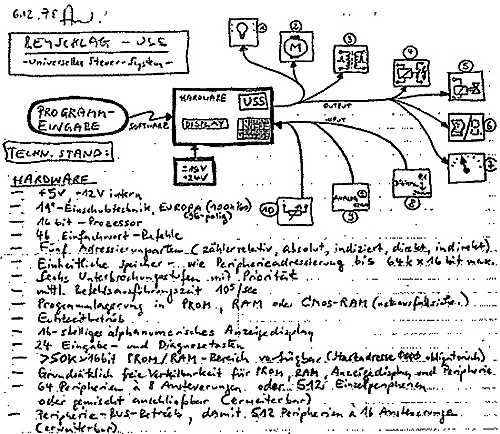 6.12.78
BEYSCHLAG - USS
- Universelles Steuer-System -
PROGRAMM-
EINGABE
SOFTWARE
HARDWARE
USS
DISPLAY
=15V
OUTPUT
INPUT
1
2
M
3
4
5
6
Σ/
7
8
9
ANALOG
10
TECHN. STAND:
HARDWARE
- +5V, -12V intern
- 19"-Einschubtechnik, EUROPA (100x160) (96-polig)
- 16 bit - Prozessor
- 46 Einfachwort-Befehle
- Fünf Adressierungsarten (zählerrelativ, absolut, indiziert, direkt, indirekt)
- Einheitliche Speicher- wie Peripherieadressierung bis 64k x 16 bit max.
- Sechs Unterbrechungsstufen mit Priorität
- mittl. Befehlsausführungszeit 10⁵/sec
- Programmlagerung in PROM, RAM oder CMOS-RAM (netzausfallsicher.)
- Echtzeitbetrieb
- 16-stelliges alphanumerisches Anzeigedisplay
- 24 Eingabe- und Diagnosetasten
- >50K x 16bit PROM/RAM-Bereich verfügbar (Startadresse obligatorisch)
- Grundsätzlich freie Verfügbarkeit für PROM, RAM, Anzeigedisplay und Peripherie
- 64 Peripherien à 8 Ansteuerungen oder 512 Einzelperipherien
oder gemischt anschließbar (erweiterbar)
- Peripherie-BUS-Betrieb, damit 512 Peripherien à 16 Ansteuerungen
(erweiterbar)